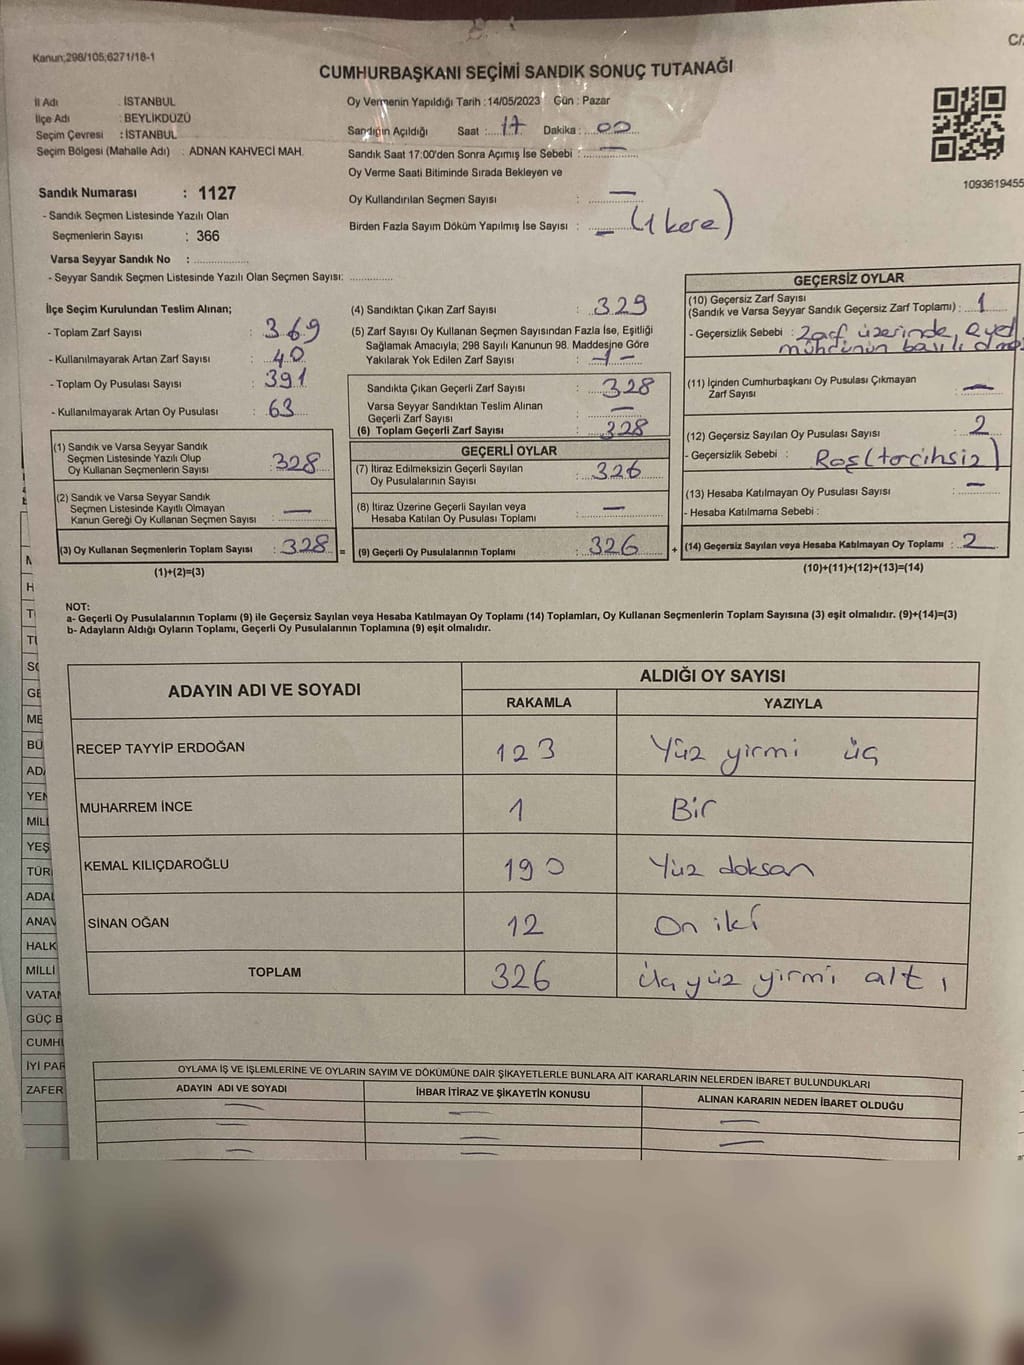 Kanun;298/105;6271/18-1
CUMHURBAŞKANI SEÇİMİ SANDIK SONUÇ TUTANAĞI
İl Adı : İSTANBUL
İlçe Adı : BEYLİKDÜZÜ
Seçim Çevresi : İSTANBUL
Seçim Bölgesi (Mahalle Adı) : ADNAN KAHVECİ MAH.
Oy Vermenin Yapıldığı Tarih :14/05/2023 Gün : Pazar
Sandığın Açıldığı Saat : 17 Dakika : 00
Sandık Saat 17:00'den Sonra Açımış İse Sebebi : —
Oy Verme Saati Bitiminde Sırada Bekleyen ve
Oy Kullandırılan Seçmen Sayısı : —
Birden Fazla Sayım Döküm Yapılmış İse Sayısı : — (1 kere)
1093619455
Sandık Numarası : 1127
- Sandık Seçmen Listesinde Yazılı Olan
Seçmenlerin Sayısı : 366
Varsa Seyyar Sandık No :
- Seyyar Sandık Seçmen Listesinde Yazılı Olan Seçmen Sayısı:
İlçe Seçim Kurulundan Teslim Alınan;
- Toplam Zarf Sayısı : 369
- Kullanılmayarak Artan Zarf Sayısı : 40
- Toplam Oy Pusulası Sayısı : 391
- Kullanılmayarak Artan Oy Pusulası : 63
(1) Sandık ve Varsa Seyyar Sandık
Seçmen Listesinde Yazılı Olup
Oy Kullanan Seçmenlerin Sayısı : 328
(2) Sandık ve Varsa Seyyar Sandık
Seçmen Listesinde Kayıtlı Olmayan
Kanun Gereği Oy Kullanan Seçmen Sayısı : —
(3) Oy Kullanan Seçmenlerin Toplam Sayısı : 328 =
(1)+(2)=(3)
(4) Sandıktan Çıkan Zarf Sayısı : 329
(5) Zarf Sayısı Oy Kullanan Seçmen Sayısından Fazla İse, Eşitliği
Sağlamak Amacıyla; 298 Sayılı Kanunun 98. Maddesine Göre
Yakılarak Yok Edilen Zarf Sayısı : -1-
Sandıkta Çıkan Geçerli Zarf Sayısı : 328
Varsa Seyyar Sandıktan Teslim Alınan
Geçerli Zarf Sayısı : —
(6) Toplam Geçerli Zarf Sayısı : 328
GEÇERLİ OYLAR
(7) İtiraz Edilmeksizin Geçerli Sayılan
Oy Pusulalarının Sayısı : 326
(8) İtiraz Üzerine Geçerli Sayılan veya
Hesaba Katılan Oy Pusulası Toplamı : —
(9) Geçerli Oy Pusulalarının Toplamı : 326 +
GEÇERSİZ OYLAR
(10) Geçersiz Zarf Sayısı
(Sandık ve Varsa Seyyar Sandık Geçersiz Zarf Toplamı) : 1
- Geçersizlik Sebebi : Zarf üzerinde
mührünün basılı
(11) İçinden Cumhurbaşkanı Oy Pusulası Çıkmayan
Zarf Sayısı : —
(12) Geçersiz Sayılan Oy Pusulası Sayısı : 2
- Geçersizlik Sebebi : Boş(tercihsiz)
(13) Hesaba Katılmayan Oy Pusulası Sayısı : —
- Hesaba Katılmama Sebebi :
(14) Geçersiz Sayılan veya Hesaba Katılmayan Oy Toplamı : 2
(10)+(11)+(12)+(13)=(14)
NOT:
a- Geçerli Oy Pusulalarının Toplamı (9) ile Geçersiz Sayılan veya Hesaba Katılmayan Oy Toplamı (14) Toplamları, Oy Kullanan Seçmenlerin Toplam Sayısına (3) eşit olmalıdır. (9)+(14)=(3)
b- Adayların Aldığı Oyların Toplamı, Geçerli Oy Pusulalarının Toplamına (9) eşit olmalıdır.
ADAYIN ADI VE SOYADI
ALDIĞI OY SAYISI
RAKAMLA YAZIYLA
RECEP TAYYİP ERDOĞAN 123 Yüz yirmi üç
MUHARREM İNCE 1 Bir
KEMAL KILIÇDAROĞLU 190 Yüz doksan
SİNAN OĞAN 12 On iki
TOPLAM 326 Üç yüz yirmi altı
OYLAMA İŞ VE İŞLEMLERİNE VE OYLARIN SAYIM VE DÖKÜMÜNE DAİR ŞİKAYETLERLE BUNLARA AİT KARARLARIN NELERDEN İBARET BULUNDUKLARI
ADAYIN ADI VE SOYADI İHBAR İTİRAZ VE ŞİKAYETİN KONUSU ALINAN KARARIN NEDEN İBARET OLDUĞU
GE
ME
BÜ
AD
YEN
MİLL
YEŞ
TÜR
ADAL
ANAV
HALK
MİLLİ
VATAN
GÜÇ B
CUMH
İYİ PAR
ZAFER